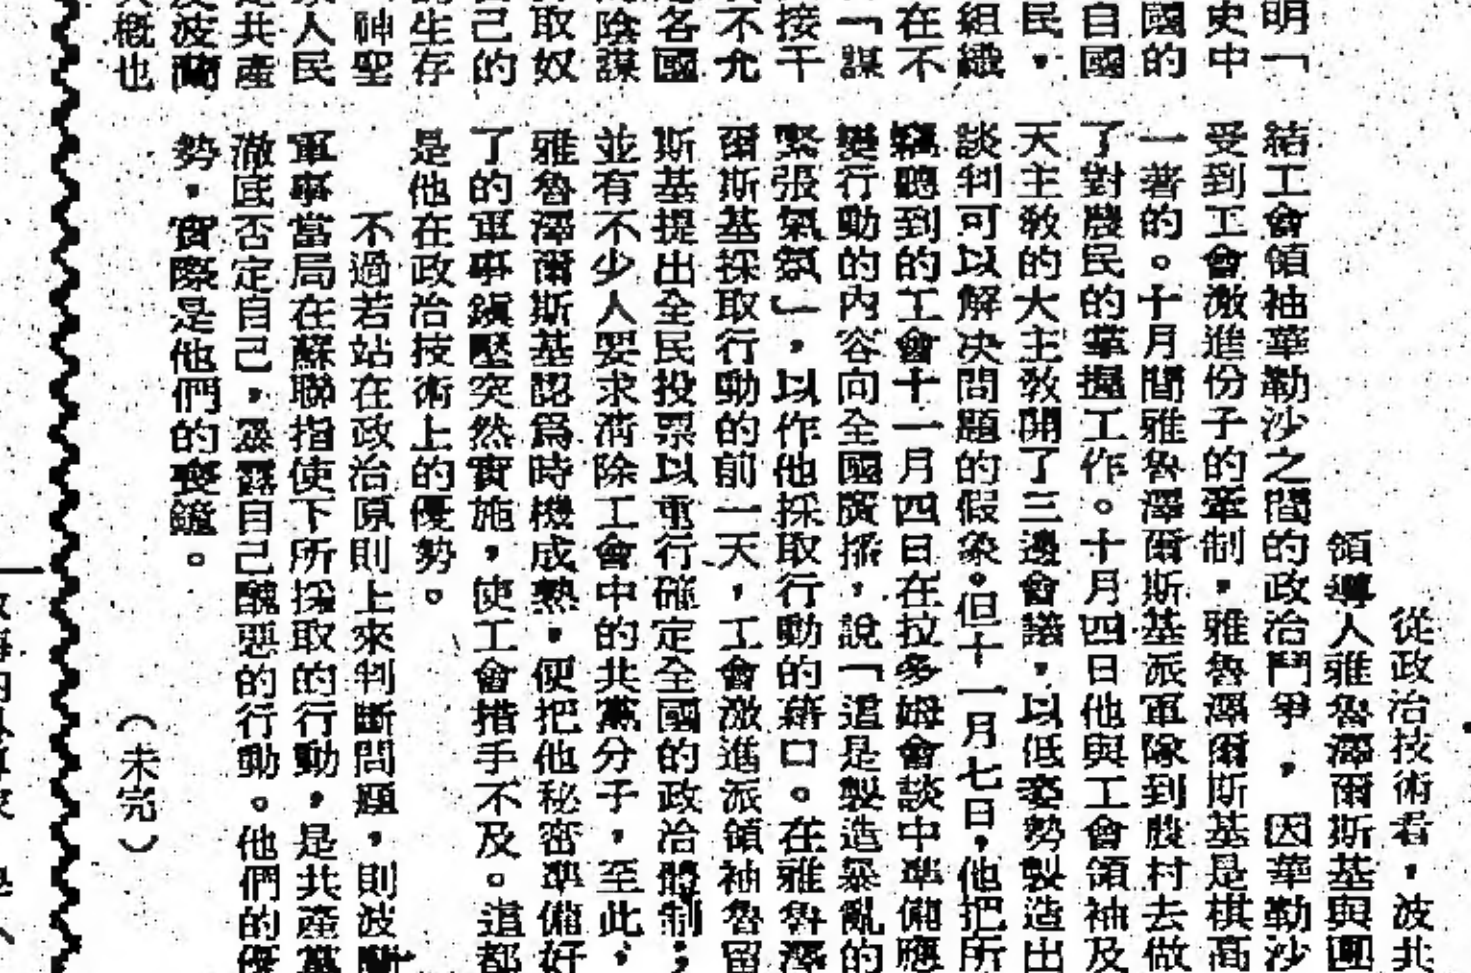 明「
史中
國的
自國
民，
組織
在不
「謀
接干
不允
各國
陰謀
取奴
己的
生存
神聖
人民
共產
波蘭
概也
從政治技術看，波北
領導人雅魯澤爾斯基與團
結工會領袖華勒沙之間的政治鬥爭，因華勒沙
受到工會激進份子的牽制，雅魯澤爾斯基是棋高
一著的。十月間雅魯澤爾斯基派軍隊到農村去做
了對農民的掌握工作。十月四日他與工會領袖及
天主教的大主教開了三邊會議，以低姿勢製造出
談判可以解決問題的假象。但十一月七日，他把所
竊聽到的工會十一月四日在拉多姆會談中準備應
變行動的內容向全國廣播，說「這是製造暴亂的
緊張氣氛」，以作他採取行動的藉口。在雅魯澤
爾斯基採取行動的前一天，工會激進派領袖魯留
斯基提出全民投票以重行確定全國的政治體制；
並有不少人要求清除工會中的共黨分子，至此，
雅魯澤爾斯基認爲時機成熟，便把他秘密準備好
了的軍事鎮壓突然實施，使工會措手不及。這都
是他在政治技術上的優勢。
不過若站在政治原則上來判斷問題，則波蘭
軍事當局在蘇聯指使下所採取的行動，是共產黨
澈底否定自己，暴露自己醜惡的行動。他們的優
勢，實際是他們的喪鐘。
（未完）